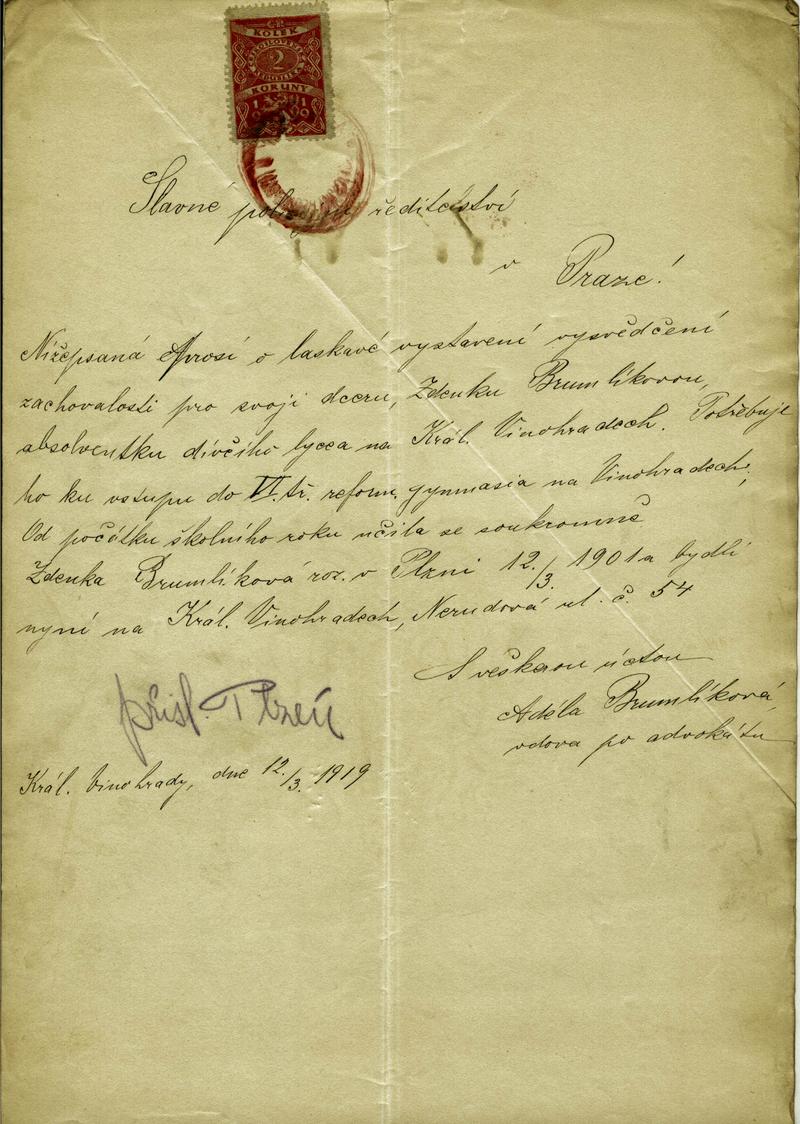 KOLEK
2
KORUNY
1919
Slavné ředitelství
v Praze!
Nížepsaná prosí o laskavé vystavení vysvědčení
zachovalosti pro svoji dceru, Zdenku Brumlíkovou,
absolventku dívčího lycea na Král. Vinohradech. Potřebuje
ho ku vstupu do VI. tř. reform. gymnasia na Vinohradech;
Od počátku školního roku učila se soukromně
Zdenka Brumlíková roz. v Plzni 12./3. 1901 a bydlí
nyní na Král. Vinohradech, Nerudová ul. č. 54
S veškerou úctou
Adéla Brumlíková,
vdova po advokátu
přísl. Plzeň
Král. Vinohrady, dne 12./3. 1919